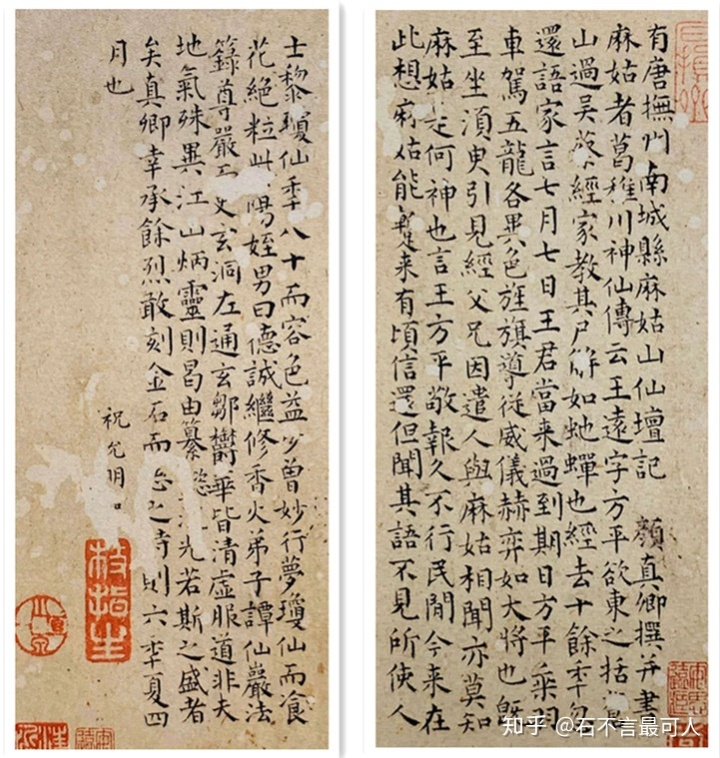 有唐撫州南城縣麻姑山仙壇記 顏真卿撰并書
麻姑者葛稚川神仙傳云王遠字方平欲東之括蒼
山過吳蔡經家教其尸解如虵蟬也經去十餘秊忽
還語家言七月七日王君當来過到期日方平乘羽
車駕五龍各異色旌旗導従威儀赫弈如大將也既
至坐湏臾引見經父兄因遣人與麻姑相聞亦莫知
麻姑是何神也言王方平敬報久不行民間今来在
此想麻姑能蹔来有頃信還但聞其語不見所使人
士黎瓊仙秊八十而容色益少曾妙行夢瓊仙而飡
花絕粒 陽姪男曰德誠繼修香火弟子譚仙巖法
籙尊嚴而史玄洞左通玄鄒鬱華皆清虛服道非夫
地氣殊異江山炳靈則曷由纂懿 光若斯之盛者
矣真卿幸承餘烈敢刻金石而志之時則六秊夏四
月也
祝允明
枝指生
知乎 @石不言最可人